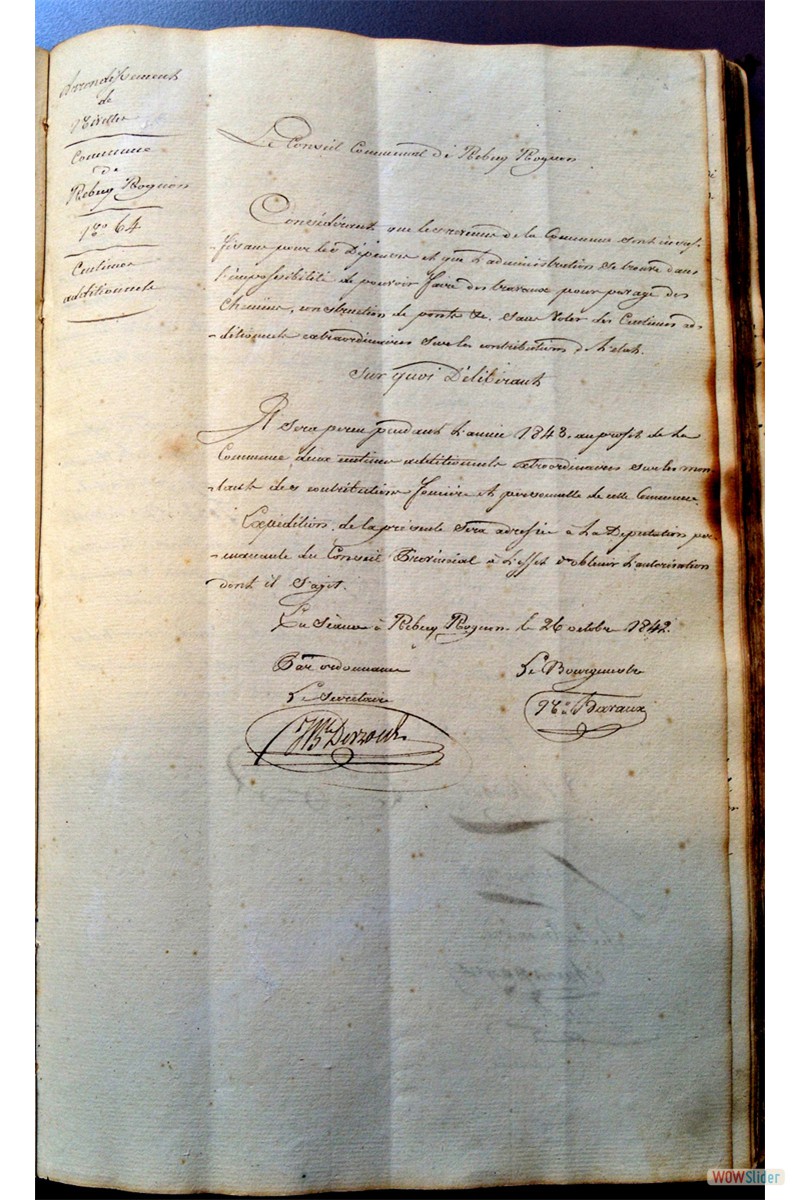 Arrondissement
de
Nivelles
Commune
de
Rebecq Rognon
N° 64
Centimes
additionnels
Le Conseil Communal de Rebecq Rognon
Considérant que les revenus de la Commune sont insuf-
fisans pour les Dépenses et que l'administration se trouve dans
l'impossibilité de pouvoir faire des travaux pour pavage des
chemins, construction de ponts &c. sans voter des Centimes ad-
-ditionnels extraordinaires sur les contributions de l'état.
Sur quoi Délibérant
Il sera perçu pendant l'année 1843. au profit de la
Commune, deux centimes additionnels extraordinaires sur les mon
-tants des contributions foncière et personnelle de cette Commune.
Expédition de la présente sera adressée à la Députation per-
-manente du Conseil Provincial à l'effet d'obtenir l'autorisation
dont il s'agit.
En Séance à Rebecq Rognon. le 26 octobre 1842.
Par ordonnance
Le Secrétaire
Le Bourgmestre
WOWSlider